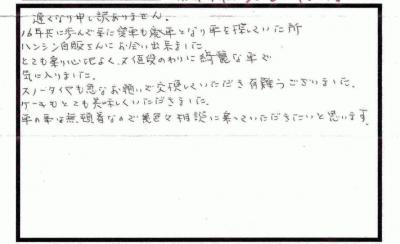 遅くなり申し訳ありません。
16年共に歩んで来た愛車も廃車となり車を探していた所
ハンシン自販さんにお会い出来ました。
とても乗り心地よく、又値段のわりに綺麗な車で
気に入りました。
スノータイヤも急なお願いで交換していただき有難うございました。
ケーキもとても美味しくいただきました。
車の事は無頓着なので 色々相談に乗っていただきたいと思います。